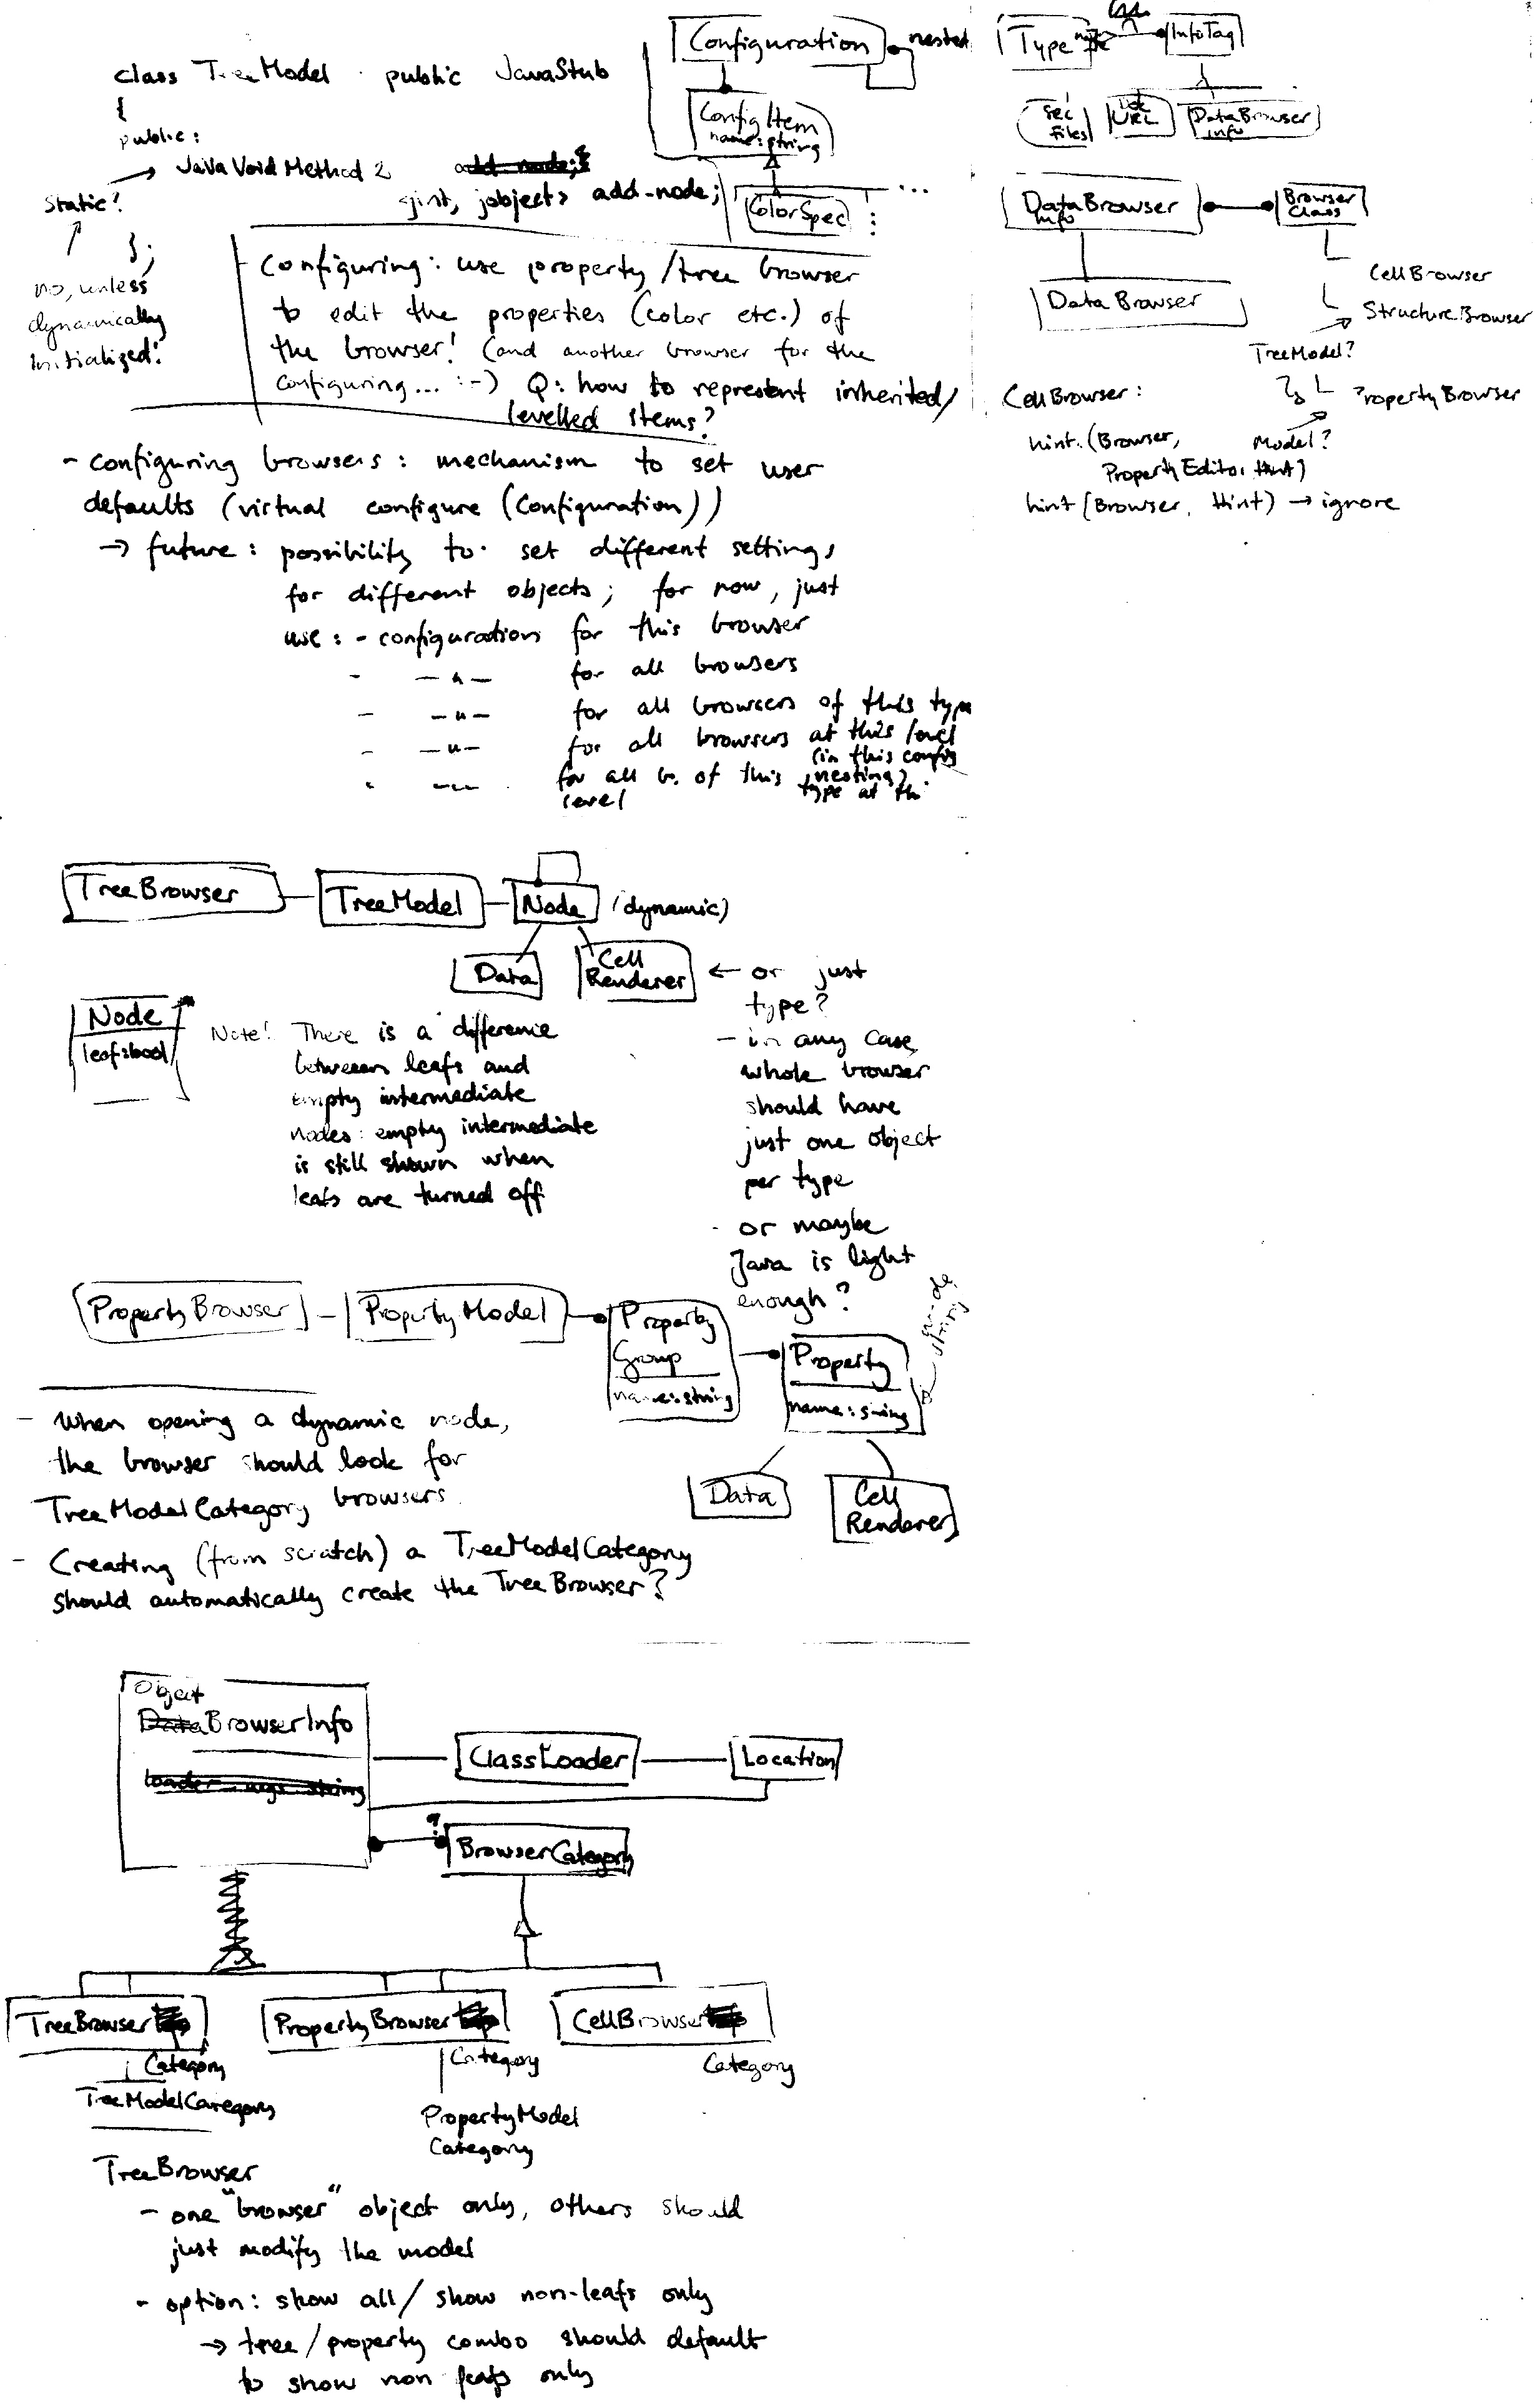 class TreeModel : public JavaStub
{
public:
→ JavaVoidMethod2 add-node;
<jint, jobject> add-node;
static?
};
no, unless
dynamically
initialized!
Configuration
nested
ConfigItem
name: string
ColorSpec
...
Configuring: use property/tree browser
to edit the properties (color etc.) of
the browser! (and another browser for the
configuring... :-) Q: how to represent inherited/
levelled items?
- configuring browsers: mechanism to set user
defaults (virtual configure (Configuration))
→ future: possibility to set different settings
for different objects; for now, just
use: - configuration for this browser
- —"— for all browsers
- —"— for all browsers of this type
- —"— for all browsers at this level
(in this config
nesting)
- —"— for all b. of this type at thi
level
Type
InfoTag
Files
URL
DataBrowser
Info
DataBrowser
Info
Browser
Class
DataBrowser
CellBrowser
StructureBrowser
TreeModel?
PropertyBrowser
Model?
CellBrowser:
hint (Browser,
PropertyEditorHint)
hint (Browser, Hint) → ignore
TreeBrowser
TreeModel
Node
(dynamic)
Data
Cell
Renderer
← or just
type?
- in any case,
whole browser
should have
just one object
per type
- or maybe
Java is light
enough?
Node
leaf:bool
Note! There is a difference
between leafs and
empty intermediate
nodes: empty intermediate
is still shown when
leafs are turned off
PropertyBrowser
PropertyModel
Property
Group
name: string
Property
name: string
string
Data
Cell
Renderer
- When opening a dynamic node,
the browser should look for
TreeModelCategory browsers.
- Creating (from scratch) a TreeModelCategory
should automatically create the TreeBrowser?
Object
DataBrowserInfo
loader-args string
ClassLoader
Location
?
BrowserCategory
TreeBrowser
Category
TreeModelCategory
PropertyBrowser
Category
PropertyModel
Category
CellBrowser
Category
TreeBrowser
- one "browser" object only, others should
just modify the model
- option: show all/show non-leafs only
→ tree/property combo should default
to show non leafs only